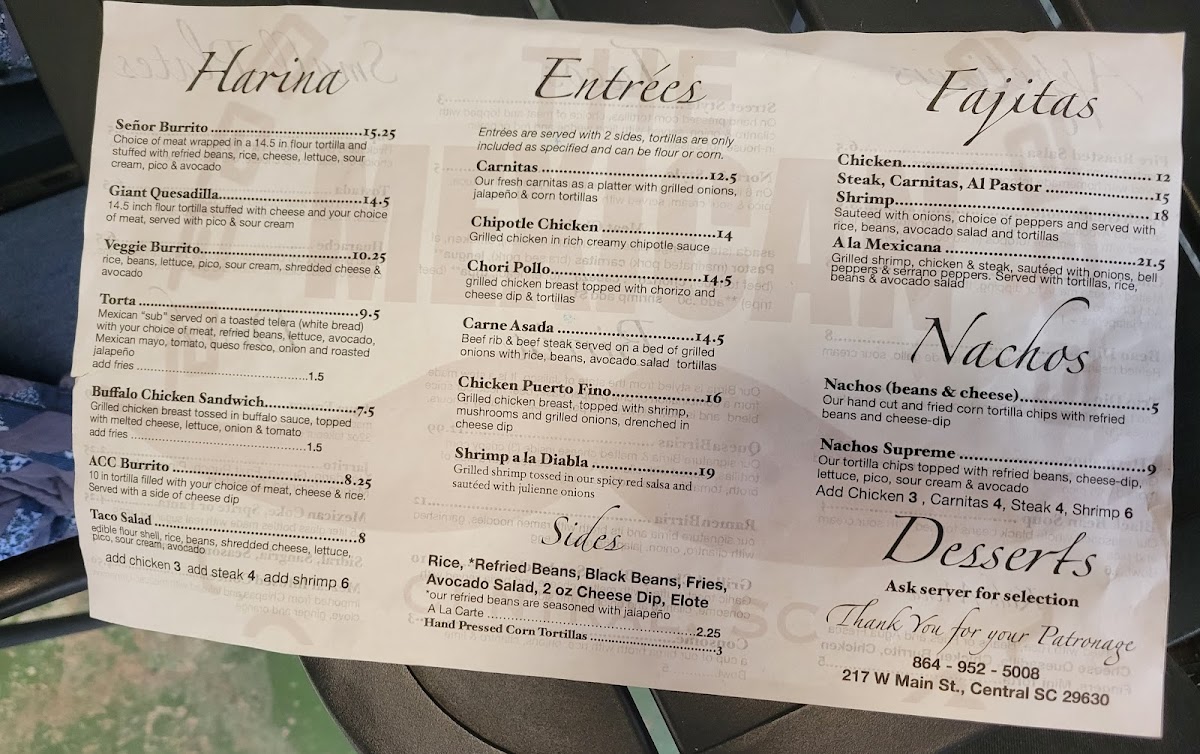 Harina
Señor Burrito ....................................15.25
Choice of meat wrapped in a 14.5 in flour tortilla and
stuffed with refried beans, rice, cheese, lettuce, sour
cream, pico & avocado
Giant Quesadilla..................................14.5
14.5 inch flour tortilla stuffed with cheese and your choice
of meat, served with pico & sour cream
Veggie Burrito....................................10.25
rice, beans, lettuce, pico, sour cream, shredded cheese &
avocado
Torta ....................................................9.5
Mexican “sub” served on a toasted telera (white bread)
with your choice of meat, refried beans, lettuce, avocado,
Mexican mayo, tomato, queso fresco, onion and roasted
jalapeño
add fries ..................................................1.5
Buffalo Chicken Sandwich.....................7.5
Grilled chicken breast tossed in buffalo sauce, topped
with melted cheese, lettuce, onion & tomato
add fries ..................................................1.5
ACC Burrito .......................................8.25
10 in tortilla filled with your choice of meat, cheese & rice.
Served with a side of cheese dip
Taco Salad ..............................................8
edible flour shell, rice, beans, shredded cheese, lettuce,
pico, sour cream, avocado
add chicken 3 add steak 4 add shrimp 6
Entrées
Entrées are served with 2 sides, tortillas are only
included as specified and can be flour or corn.
Carnitas ........................................12.5
Our fresh carnitas as a platter with grilled onions,
jalapeño & corn tortillas
Chipotle Chicken ............................14
Grilled chicken in rich creamy chipotle sauce
Chori Pollo....................................14.5
grilled chicken breast topped with chorizo and
cheese dip & tortillas
Carne Asada .................................14.5
Beef rib & beef steak served on a bed of grilled
onions with rice, beans, avocado salad tortillas
Chicken Puerto Fino......................16
Grilled chicken breast, topped with shrimp,
mushrooms and grilled onions, drenched in
cheese dip
Shrimp a la Diabla .........................19
Grilled shrimp tossed in our spicy red salsa and
sautéed with julienne onions
Sides
Rice, *Refried Beans, Black Beans, Fries,
Avocado Salad, 2 oz Cheese Dip, Elote
*our refried beans are seasoned with jalapeño
A La Carte ..........................................2.25
Hand Pressed Corn Tortillas ..........................3
Fajitas
Chicken.................................................... 12
Steak, Carnitas, Al Pastor .......................15
Shrimp..................................................... 18
Sauteed with onions, choice of peppers and served with
rice, beans, avocado salad and tortillas
A la Mexicana .......................................21.5
Grilled shrimp, chicken & steak, sautéed with onions, bell
peppers & serrano peppers. Served with tortillas, rice,
beans & avocado salad
Nachos
Nachos (beans & cheese)..........................5
Our hand cut and fried corn tortilla chips with refried
beans and cheese-dip
Nachos Supreme .....................................9
Our tortilla chips topped with refried beans, cheese-dip,
lettuce, pico, sour cream & avocado
Add Chicken 3 , Carnitas 4, Steak 4, Shrimp 6
Desserts
Ask server for selection
Thank You for your Patronage
864 - 952 - 5008
217 W Main St., Central SC 29630